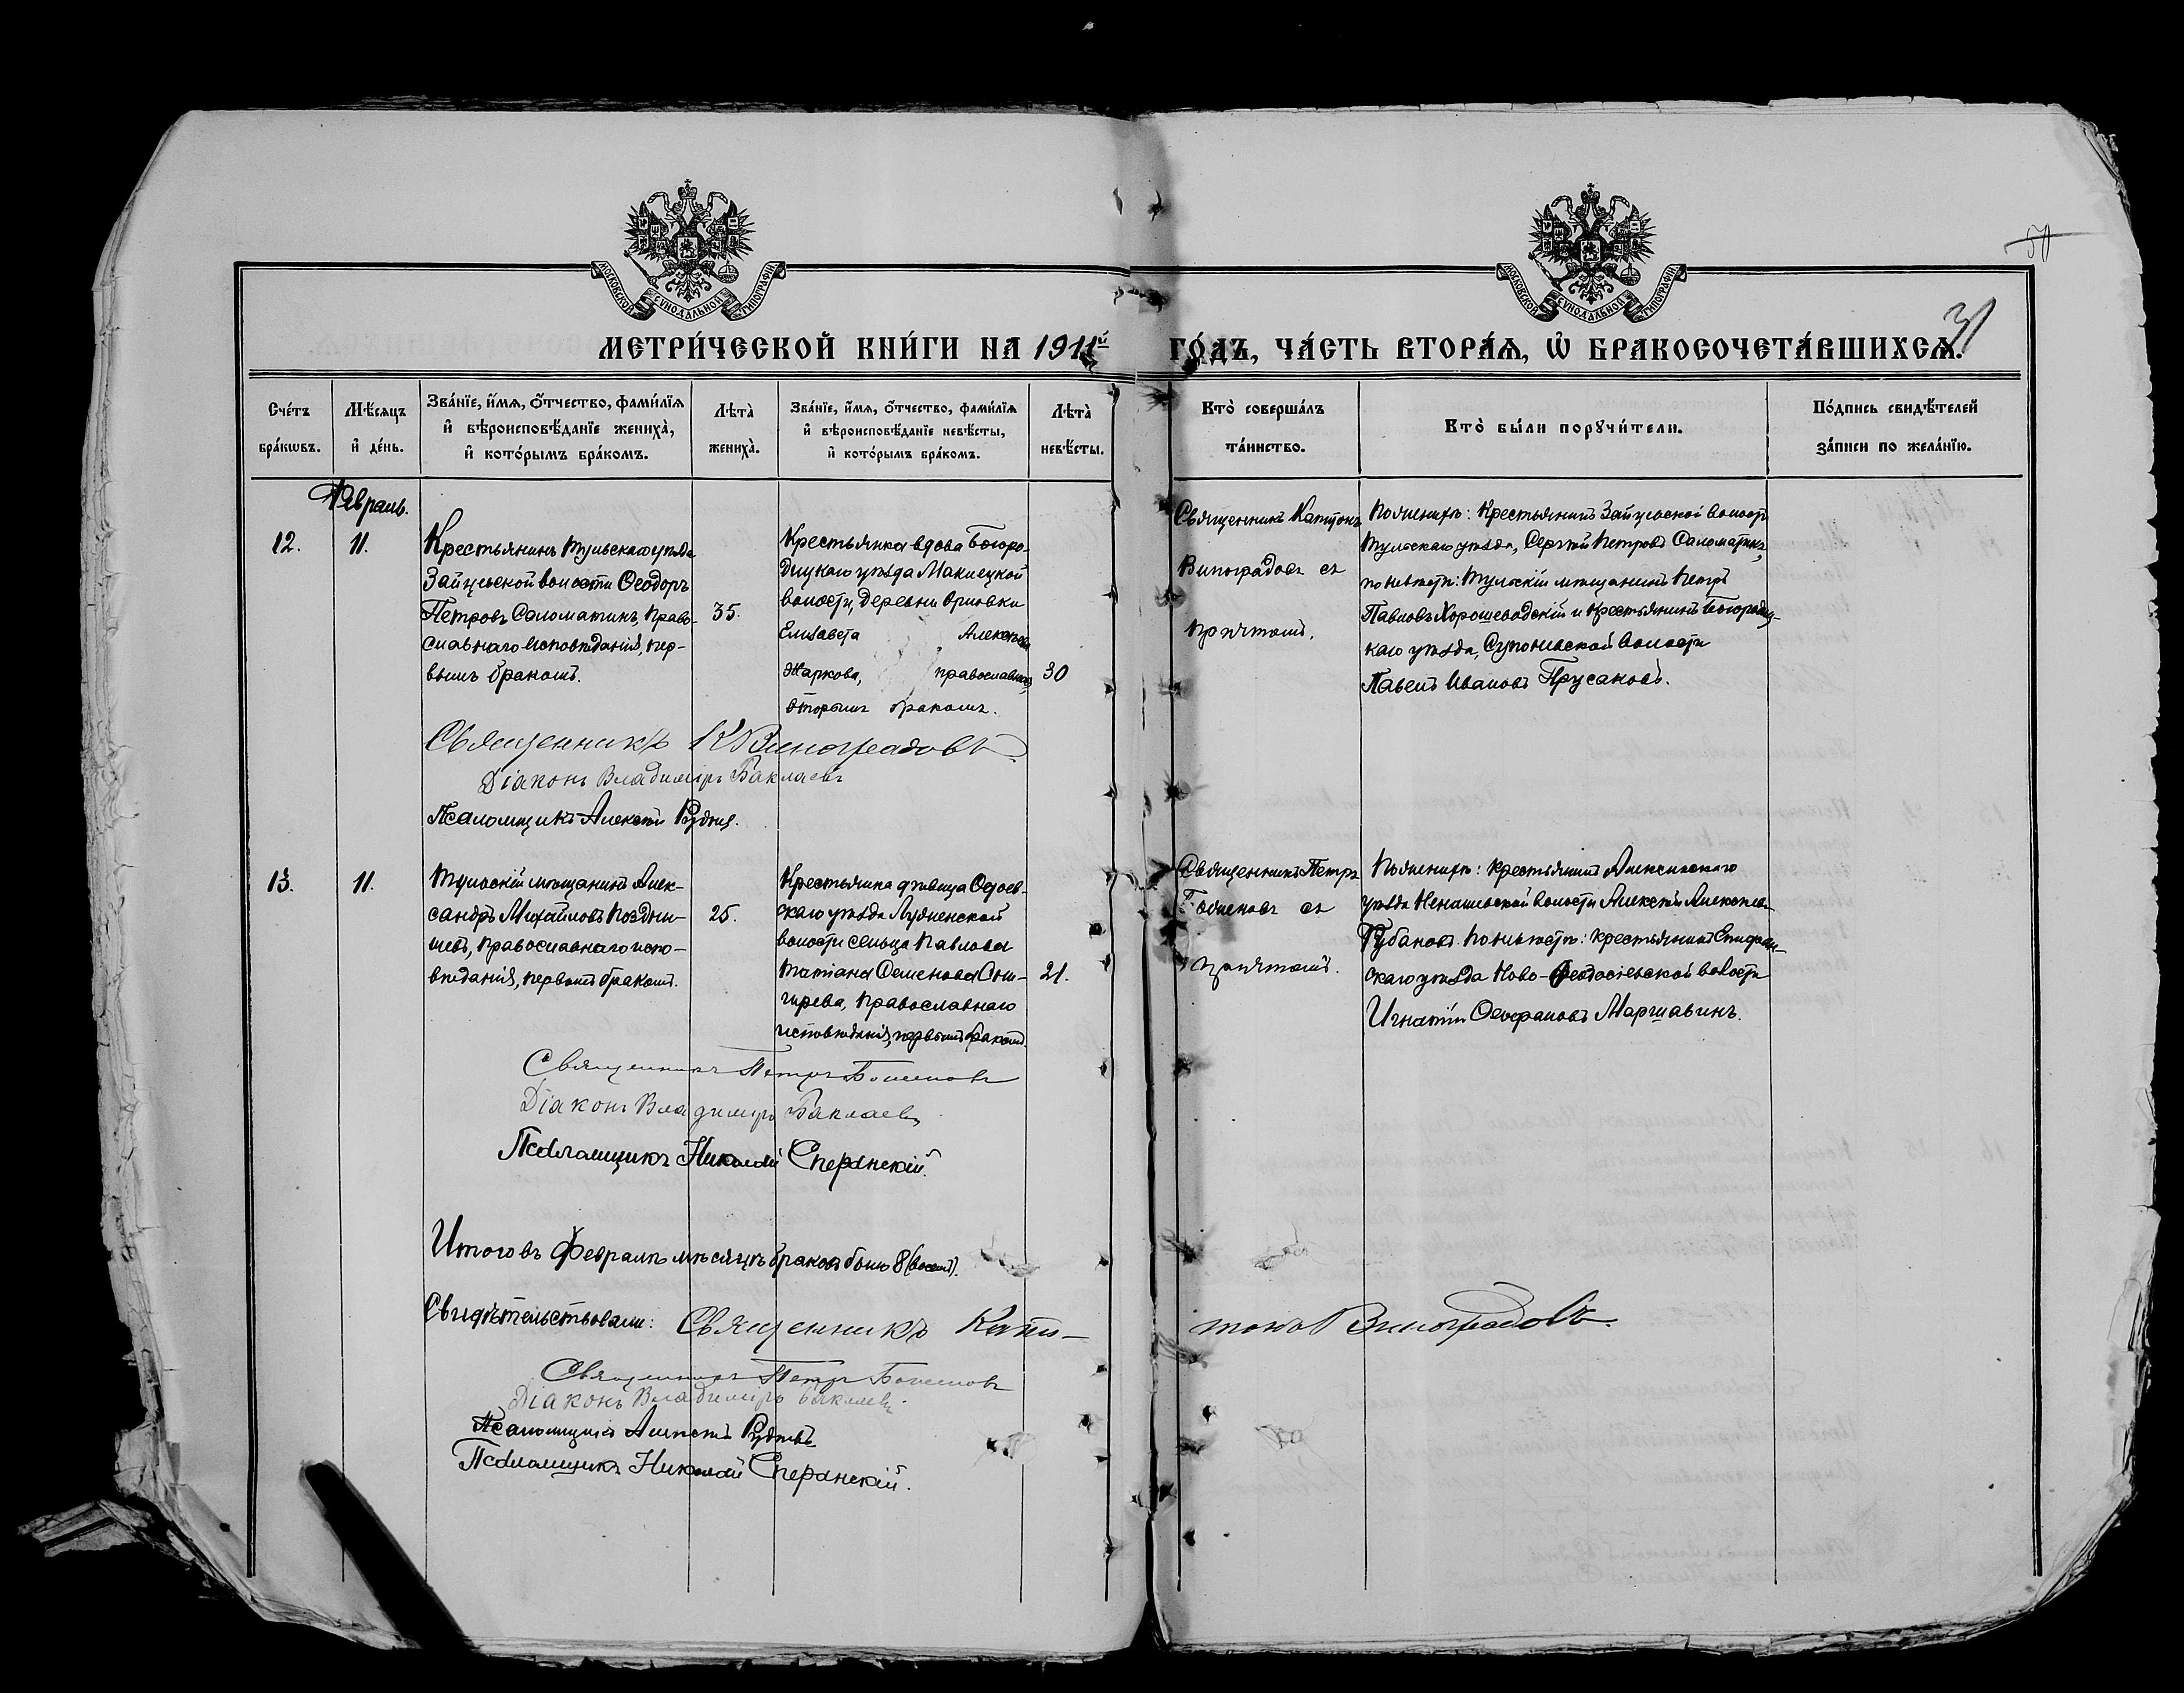 50
31
МОСКОВСКОЙ СѴНОДАЛЬНОЙ ТИПОГРАФІИ
МОСКОВСКОЙ СѴНОДАЛЬНОЙ ТИПОГРАФІИ
МЕТРИ́ЧЕСКОЙ КНИ́ГИ НА 1911й ГО́ДЪ, ЧА́СТЬ ВТОРА́Я, Ѡ БРАКОСОЧЕТА́ВШИХСЯ.
Сче́тъ
бра́кѡвъ.
Мѣ́сяцъ
и҆ де́нь.
Зва́нїе, и҆́мя, ѻ҆́тчество, фами́лїя
и҆ вѣроисповѣ́данїе жениха̀,
и҆ кото́рымъ бра́комъ.
Лѣта̀
жениха̀.
Зва́нїе, и҆́мя, ѻ҆́тчество, фами́лїя
и҆ вѣроисповѣ́данїе невѣ́сты,
и҆ кото́рымъ бра́комъ.
Лѣта̀
невѣ́сты.
Кто̀ соверша́лъ
та́инство.
Кто̀ бы́ли порꙋчи́тели.
По́дпись свидѣ́телей
за́писи по жела́нїю.
Февраль.
12.
11.
Крестьянинъ Тульскаго уѣзда
Зайцевской волости Ѳеодоръ
Петровъ Соломатинъ, Право-
славнаго исповѣданія, пер-
вымъ бракомъ.
35.
Крестьянка вдова Богоро-
дицкаго уѣзда
волости, деревни Орловки
Елизавета Алексѣева
Жаркова, православнаго,
вторымъ бракомъ.
30
Священникъ Капитонъ
Виноградовъ съ
причтомъ.
По женихѣ: Крестьянинъ Зайцевской волости
Тульскаго уѣзда, Сергѣй Петровъ Саломатинъ,
по невѣстѣ: Тульскій мѣщанинъ Петръ
Павловъ и крестьянинъ Богородиц-
каго уѣзда, волости
Павелъ Ивановъ Прусаковъ.
Священникъ К Виноградовъ
Діаконъ Владиміръ Баклаевъ
Псаломщикъ Алексѣй Руднев.
13.
11.
Тульскій мѣщанинъ Алек-
сандръ Михайловъ Поздны-
шевъ, Православнаго испо-
вѣданія, первымъ бракомъ.
25.
Крестьянка дѣвица Одоев-
скаго уѣзда
волости сельца Павлова
Татіана Семенова Сни-
гирева, Православнаго
исповѣданія, первымъ бракомъ.
21.
Священникъ Петръ
съ
причтомъ.
По женихѣ: крестьянинъ Алексинскаго
уѣзда Ненашевской волости Алексѣй Алексѣевъ
Губановъ. По невѣстѣ: крестьянинъ Епифан-
скаго уѣзда Ново-Ѳеодосіевской волости
Игнатій Ѳеофановъ Маршавинъ.
Священникъ Петръ
Діаконъ Владиміръ Баклаевъ
Псаломщикъ Николай Сперанскій.
Итого въ Февралѣ мѣсяцѣ браковъ было 8 (восемь).
Свидѣтельствовали: Священникъ Капи-
тонъ Виноградовъ.
Священникъ Петръ
Діаконъ Владиміръ Баклаевъ
Псаломщикъ Алексѣй Рудневъ
Псаломщикъ Николай Сперанскій.